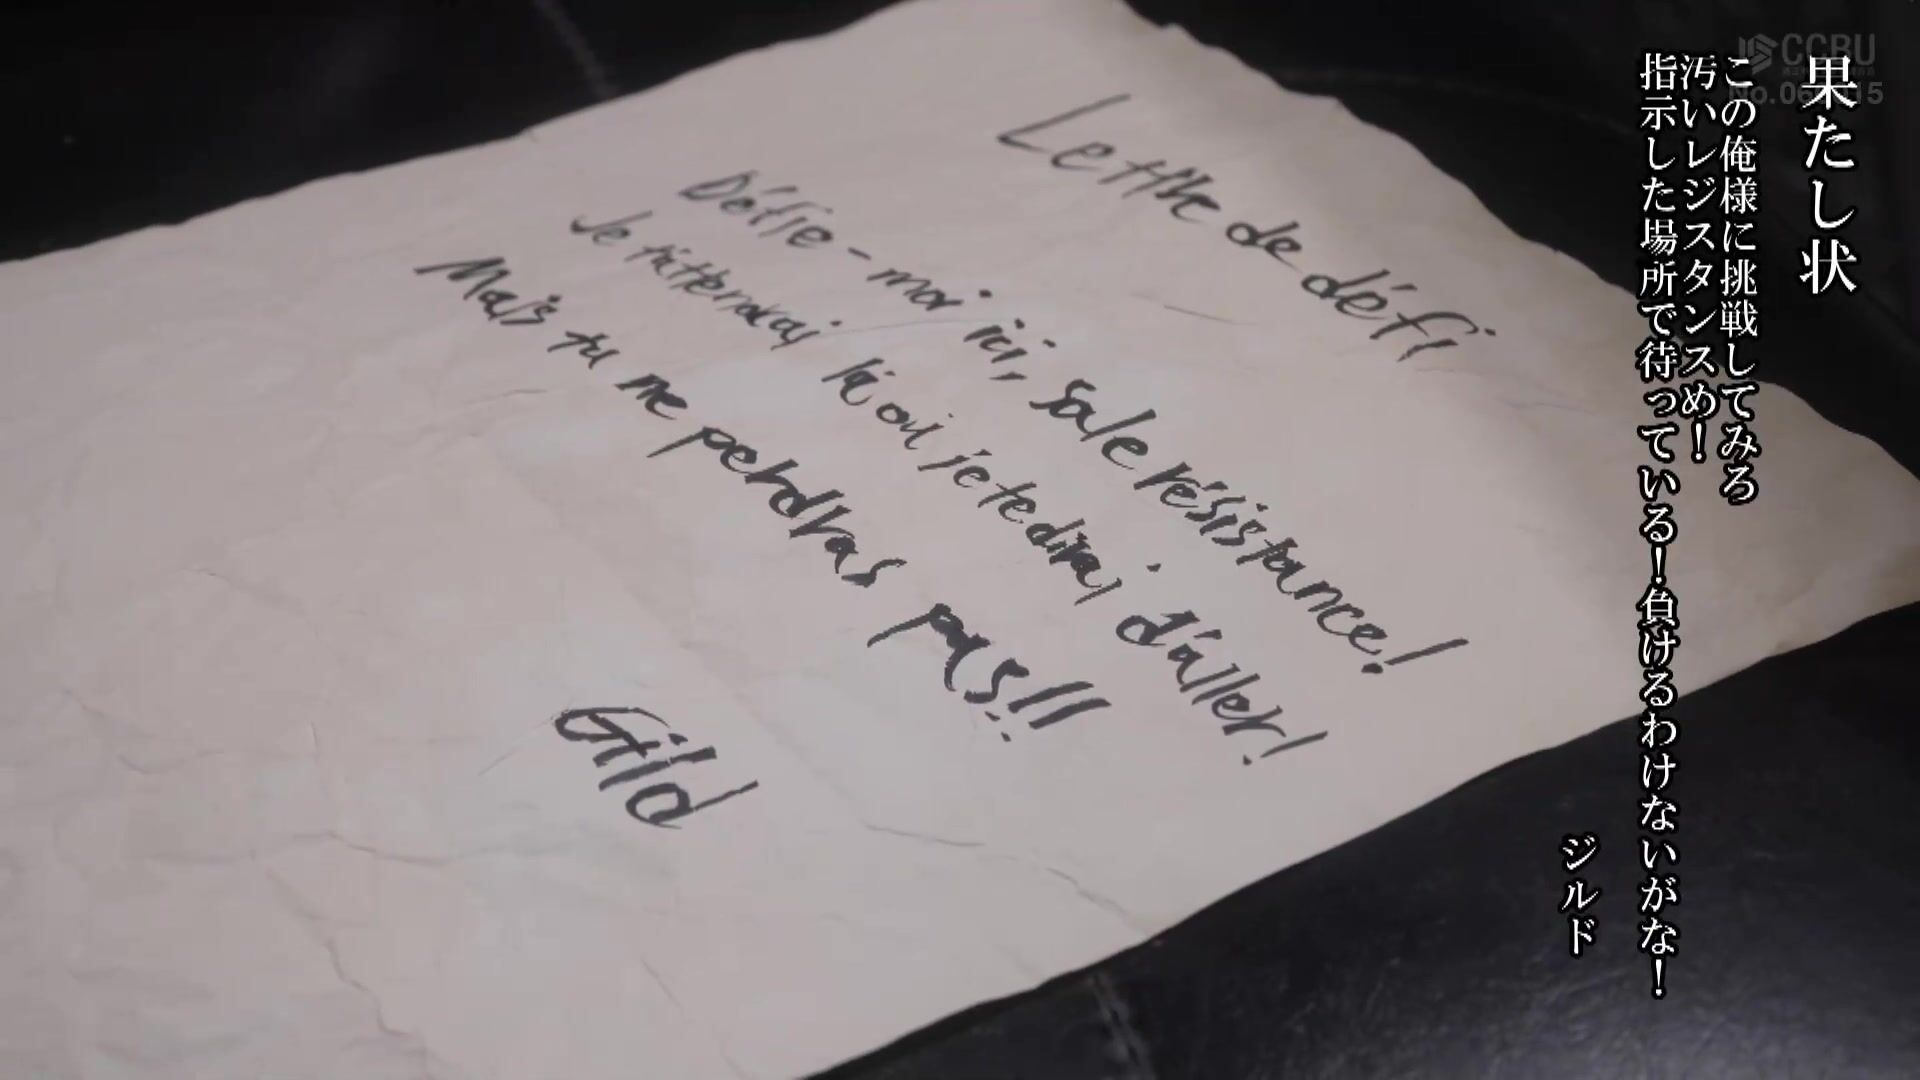 Lettre de défi
Défie-moi ici, sale résistance!
Je t'attendrai là où je te dirai d'aller!
Mais tu me perdras pas!!
Gild
果たし状
この俺様に挑戦してみろ
汚いレジスタンスめ！
指示した場所で待っている！負けるわけないがな！
ジルド
CCBU